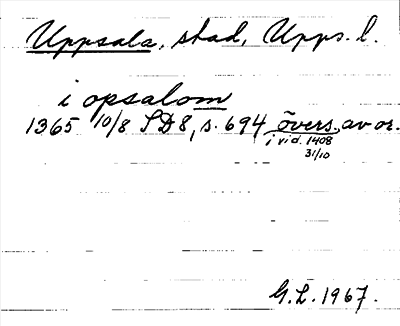 Uppsala, stad, Upps. l.
i opsalom
1365 10/8 SD8, s. 694 övers. av or.
i vid. 1408
31/10
G.L. 1967.